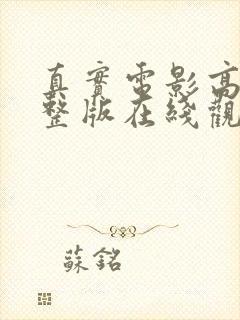 真實電影高
整版在綫觀
蘇銘